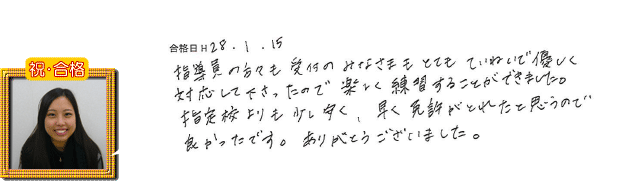 祝・合格
合格日 H 28.1.15
指導員の方々も受付のみなさまもとてもていねいで優しく
対応して下さったので楽しく練習することができました。
指定校よりも少し安く、早く免許がとれたと思うので
良かったです。ありがとうございました。